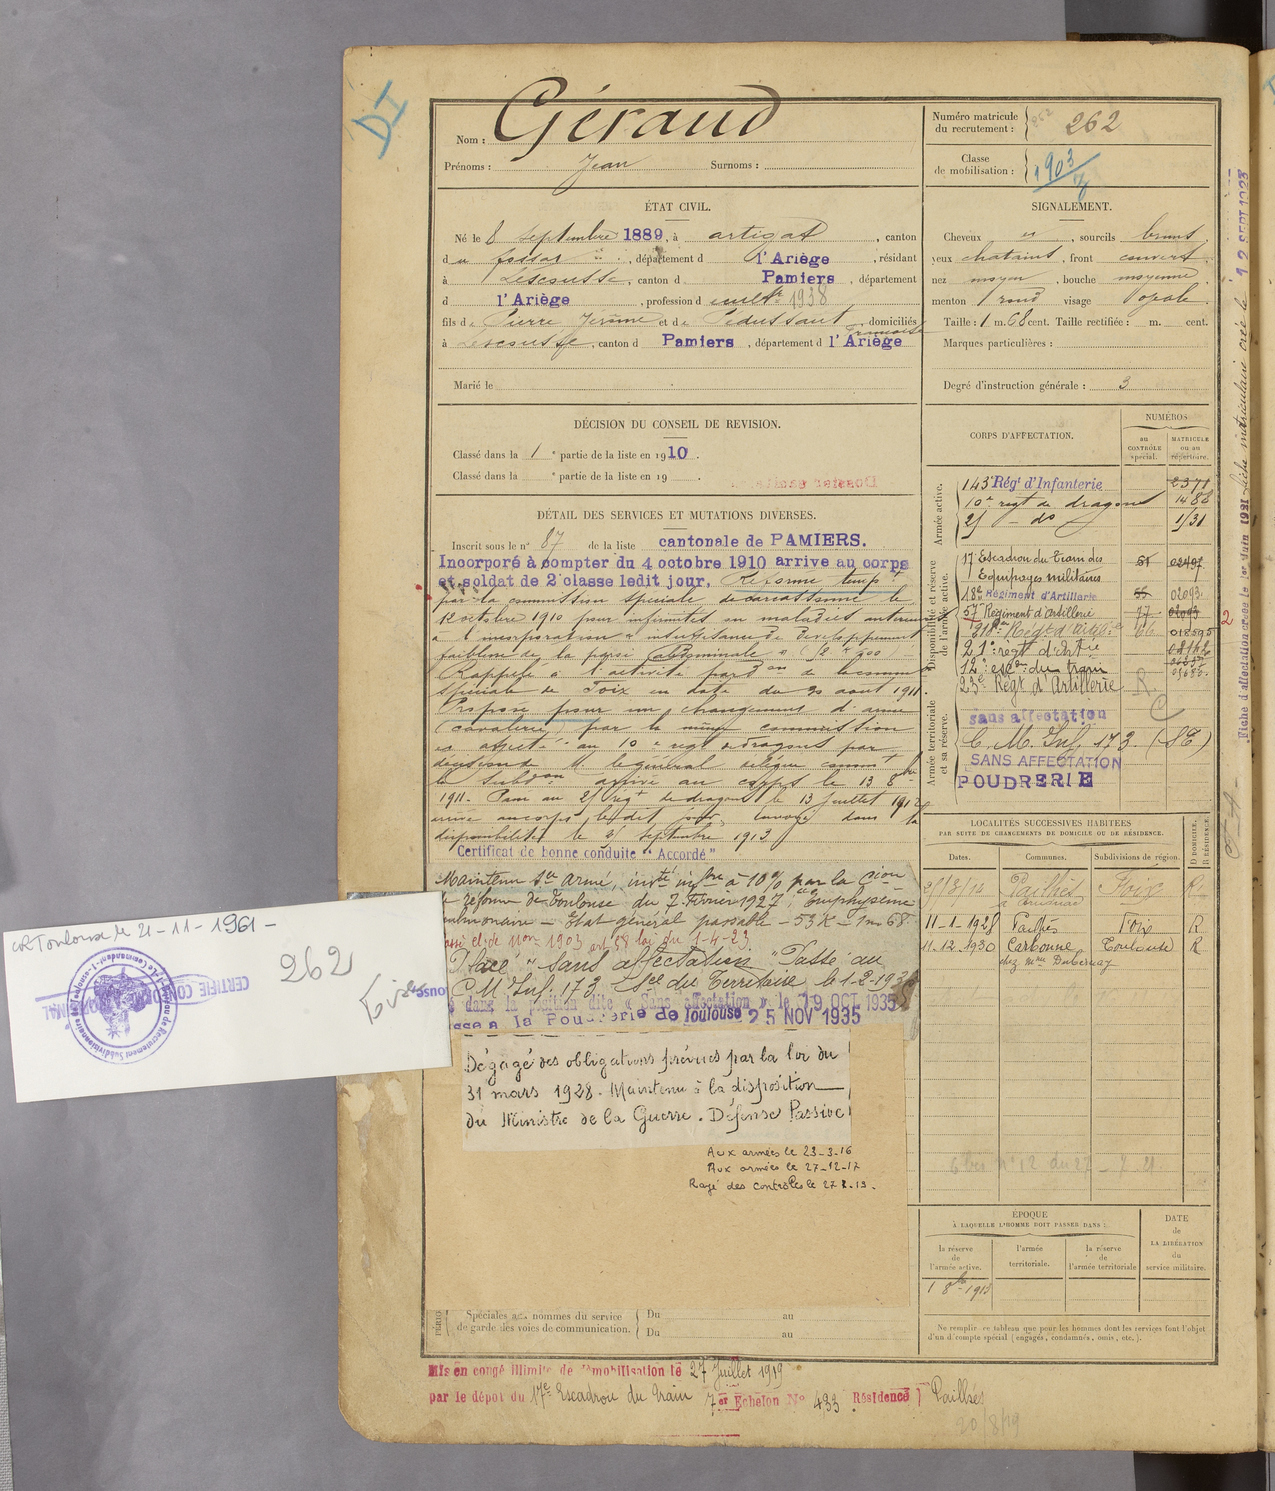 DI
Nom : Géraud
Prénoms : Jean Surnoms :
Numéro matricule du recrutement : 262
Classe de mobilisation : 1903
ÉTAT CIVIL.
Né le 8 septembre 1889, à artigat, canton
du fossat, département d l'Ariège, résidant
à Lescousse, canton d Pamiers, département
d l'Ariège, profession d cultr 1938
fils de Pierre Jérôme et de Pédussaut Françoise domiciliés
à Lescousse, canton d Pamiers, département d l'Ariège
Marié le
SIGNALEMENT.
Cheveux et, sourcils bruns,
yeux chatains, front couvert,
nez moyen, bouche moyenne
menton rond visage ovale.
Taille : 1 m. 68 cent. Taille rectifiée : m. cent.
Marques particulières :
Degré d'instruction générale : 3
DÉCISION DU CONSEIL DE REVISION.
Classé dans la 1e partie de la liste en 1910.
Classé dans la e partie de la liste en 19 .
DÉTAIL DES SERVICES ET MUTATIONS DIVERSES.
Inscrit sous le n° 87 de la liste cantonale de PAMIERS.
Incorporé à compter du 4 octobre 1910 arrive au corps
et soldat de 2e classe ledit jour. Réformé tempt
par la commission spéciale de Carcassonne le
12 octobre 1910 pour infirmités ou maladies antérieures
à l'incorporation « insuffisance de développement
faiblesse de la paroi abdominale »
Rappelé à l'activité par don de la comm
spéciale de Foix en date du 30 aout 1911.
Proposé pour un changement d'arme
(cavalerie) par la même commission
et affecté au 10e régt de dragons par
décision de M. le général délégué commt
la Subdon arrivé au corps le 13 8bre
1911. Passé au 2e régt de dragons le 13 juillet 1912
arrivé au corps ledit jour. Envoyé dans la
disponibilité le septembre 1913
Certificat de bonne conduite "Accordé"
Maintenu Sce armé, invté infre à 10% par la Cion
de réforme de Toulouse du 7 Février 1927, Emphysème
pulmonaire – Etat général passable – 53K – 1m68.
Passé cl. de mon 1903 art 58 loi du 1-4-23.
Placé "Sans affectation" Passé au
C M Inf. 173 Sce du Territoire le 1-2-193
dans la position dite « Sans affectation » le 19 OCT 1935
Passé à la Poudrerie de Toulouse 25 NOV 1935
Dégagé des obligations prévues par la loi du
31 mars 1928. Maintenu à la disposition
du Ministre de la Guerre. Défense Passive
Aux armées le 23-3-16
Aux armées le 27-12-17
Rayé des contrôles le 27.2.19.
Spéciales aux hommes du service de garde des voies de communication. Du au
Du au
Mis en congé illimité de démobilisation le 27 Juillet 1919
par le dépôt du 17e Escadron du Train 7er Échelon N° 433 Résidence Pailhès
20/8/19
CORPS D'AFFECTATION.
NUMÉROS
au CONTRÔLE spécial.
MATRICULE ou au répertoire.
Armée active.
143e Régt d'Infanterie 2371
10e régt de dragons 1486
2e – do 1/31
Disponibilité et réserve de l'armée active.
17 Escadron du Train des Equipages militaires 51 02497
18e Régiment d'Artillerie 55 02093
57e Régiment d'Artillerie 77 02093
218e Régt d'Artie 66 018595
21e régt d'Artie
12e escon du train
23e Régt d'Artillerie R.
Armée territoriale et sa réserve.
sans affectation
C
C. M. Inf. 173. (SE)
SANS AFFECTATION
POUDRERIE
LOCALITÉS SUCCESSIVES HABITÉES
PAR SUITE DE CHANGEMENTS DE DOMICILE OU DE RÉSIDENCE.
Dates. Communes. Subdivisions de région. D DOMICILE. R RÉSIDENCE.
Pailhès Foix R
11-1-1928 Pailhès Foix R
11-12-1930 Carbonne Toulouse R
chez Mme Dubernay
ÉPOQUE
À LAQUELLE L'HOMME DOIT PASSER DANS :
la réserve de l'armée active.
l'armée territoriale.
la réserve de l'armée territoriale
DATE de LA LIBÉRATION du service militaire.
1 8bre 1913
Ne remplir ce tableau que pour les hommes dont les services font l'objet
d'un décompte spécial (engagés, condamnés, omis, etc.).
Fiche d'affectation créée le 1er Juin 1921 fiche matriculaire créée le 12 SEPT 1923
2
Toulouse le 21-11-1961-
262
Foix
CERTIFIÉ CONFORME
Bureau de Recrutement Subdivisionnaire de Toulouse
Le Commandant